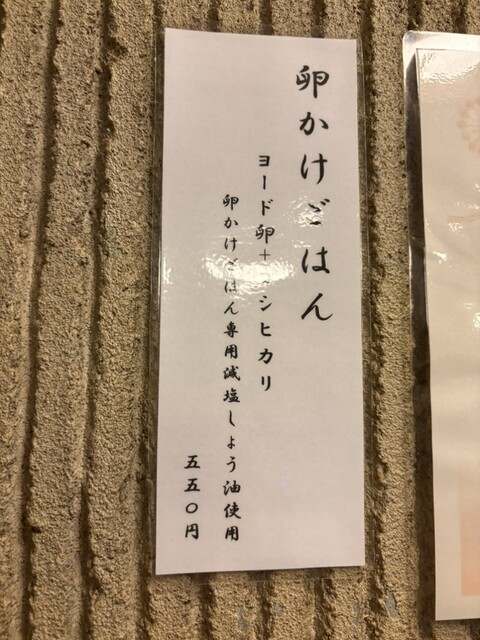 卵かけごはん
ヨード卵+コシヒカリ
卵かけごはん専用減塩しょう油使用
五五〇円